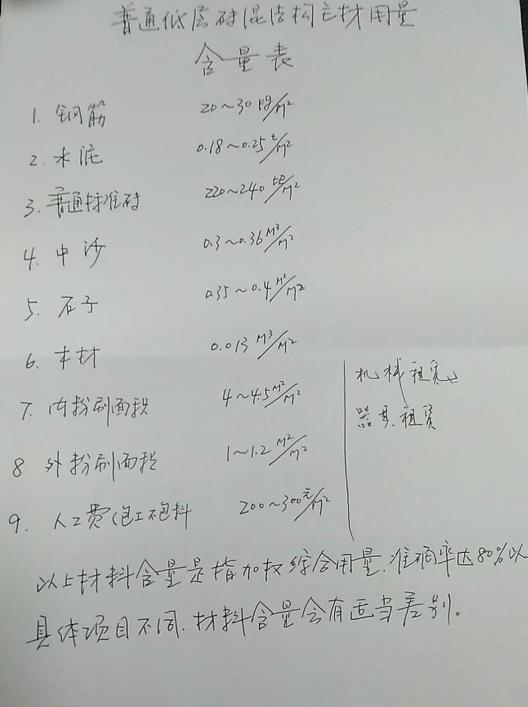 普通低层砖混结构主材用量
含量表
1. 钢筋 20~30 kg/m²
2. 水泥 0.18~0.25 t/m²
3. 普通标准砖 220~240 块/m²
4. 中沙 0.3~0.36 M³/M²
5. 石子 0.35~0.4 M³/M²
6. 木材 0.013 M³/M²
7. 内粉刷面积 4~4.5 M²/M²
8 外粉刷面积 1~1.2 M²/M²
9. 人工费(包工不包料 200~300元/M²
机械租赁
器具租赁
以上材料含量是指加权综合用量.准确率达80%以
具体项目不同.材料含量会有适当差别。